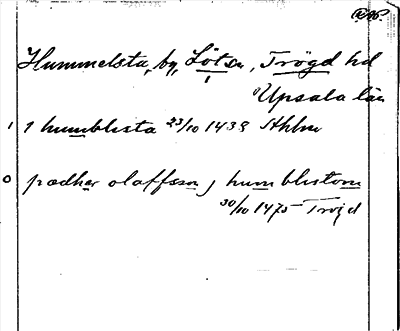 Hummelsta, by, Löts sn, Trögd hd
Upsala län
1 J humblista 23/10 1438 Sthlm
0 pædhar olaffsson j humblistom
30/10 1475 Trögd